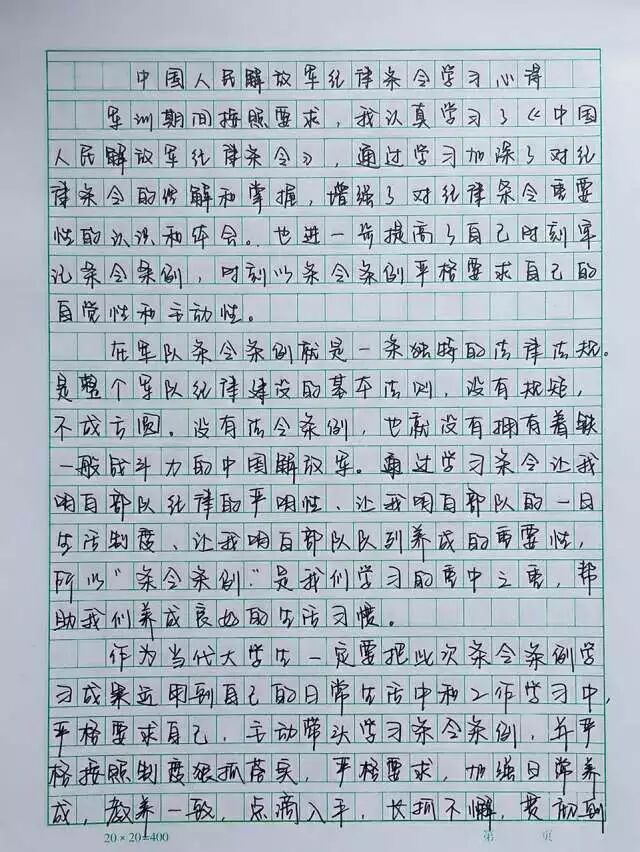 中国人民解放军纪律条令学习心得
军训期间按照要求，我认真学习了《中国
人民解放军纪律条令》，通过学习加深了对纪
律条令的理解和掌握，增强了对纪律条令重要
性的认识和体会。也进一步提高了自己时刻牢
记条令条例，时刻以条令条例严格要求自己的
自觉性和主动性。
在军队条令条例就是一条独特的法律法规。
是整个军队纪律建设的基本法则，没有规矩，
不成方圆。没有法令条例，也就没有拥有着铁
一般战斗力的中国解放军。通过学习条令让我
明白部队纪律的严明性、让我明白部队的一日
生活制度、让我明白部队队列养成的重要性，
所以“条令条例”是我们学习的重中之重，帮
助我们养成良好的生活习惯。
作为当代大学生一定要把此次条令条例学
习成果运用到自己的日常生活中和工作学习中，
严格要求自己，主动带头学习条令条例，并严
格按照制度狠抓落实，严格要求，加强日常养
成，教养一致，点滴入手，长抓不懈，贯彻到
20×20=400
第 页